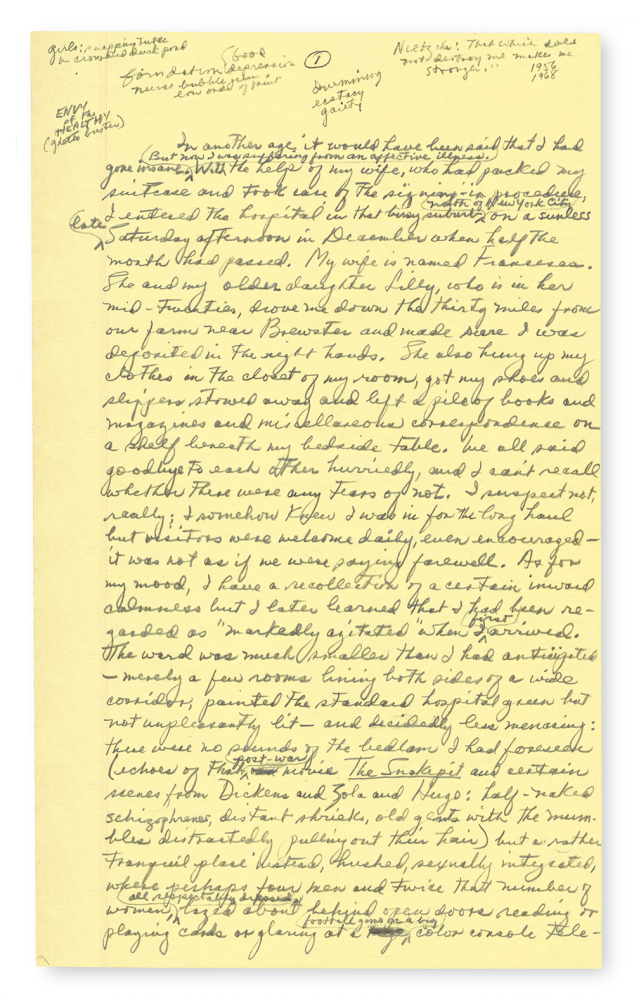 girls: snapping turtle
in crowded duck pond
Good
foundation depression
nurse bubble
low order of
①
Swimming
ecstasy
gaiety
Nietzsche: "That which does
not destroy me makes me
stronger." 1956
1968
ENVY
of the
HEALTHY
(ghetto buster)
In another age it would have been said that I had
(But now I was suffering from an affective illness.)
gone insane. With the help of my wife, who had packed my
suitcase and took care of the signing-in procedure,
(north of New York City)
I entered the hospital in that busy suburb on a sunless
late
Saturday afternoon in December when half the
month had passed. My wife is named Francesca.
She and my older daughter Lilly, who is in her
mid-twenties, drove me down the thirty miles from
our farm near Brewster and made sure I was
deposited in the right hands. She also hung up my
clothes in the closet of my room, got my shoes and
slippers stowed away and left a pile of books and
magazines and miscellaneous correspondence on
a shelf beneath my bedside table. We all said
goodbye to each other hurriedly, and I can't recall
whether there were any tears or not. I suspect not,
really; I somehow knew I was in for the long haul
but visitors were welcome daily, even encouraged—
it was not as if we were saying farewell. As for
my mood, I have a recollection of a certain inward
calmness but I later learned that I had been re-
first
garded as "markedly agitated" when I arrived.
The ward was much smaller than I had anticipated
— merely a few rooms lining both sides of a wide
corridor, painted the standard hospital green but
not unpleasantly lit — and decidedly less menacing:
there were no sounds of the bedlam I had foreseen
post-war
(echoes of that movie The Snakepit and certain
scenes from Dickens and Zola and Hugo: half-naked
schizophrenes, distant shrieks, old gents with the mum-
bles distractedly pulling out their hair) but a rather
tranquil place instead, hushed, sexually integrated,
where perhaps four men and twice that number of
(all respectably dressed)
women, lazed about behind open doors reading or
football game on a big
playing cards or glaring at a color console tele-